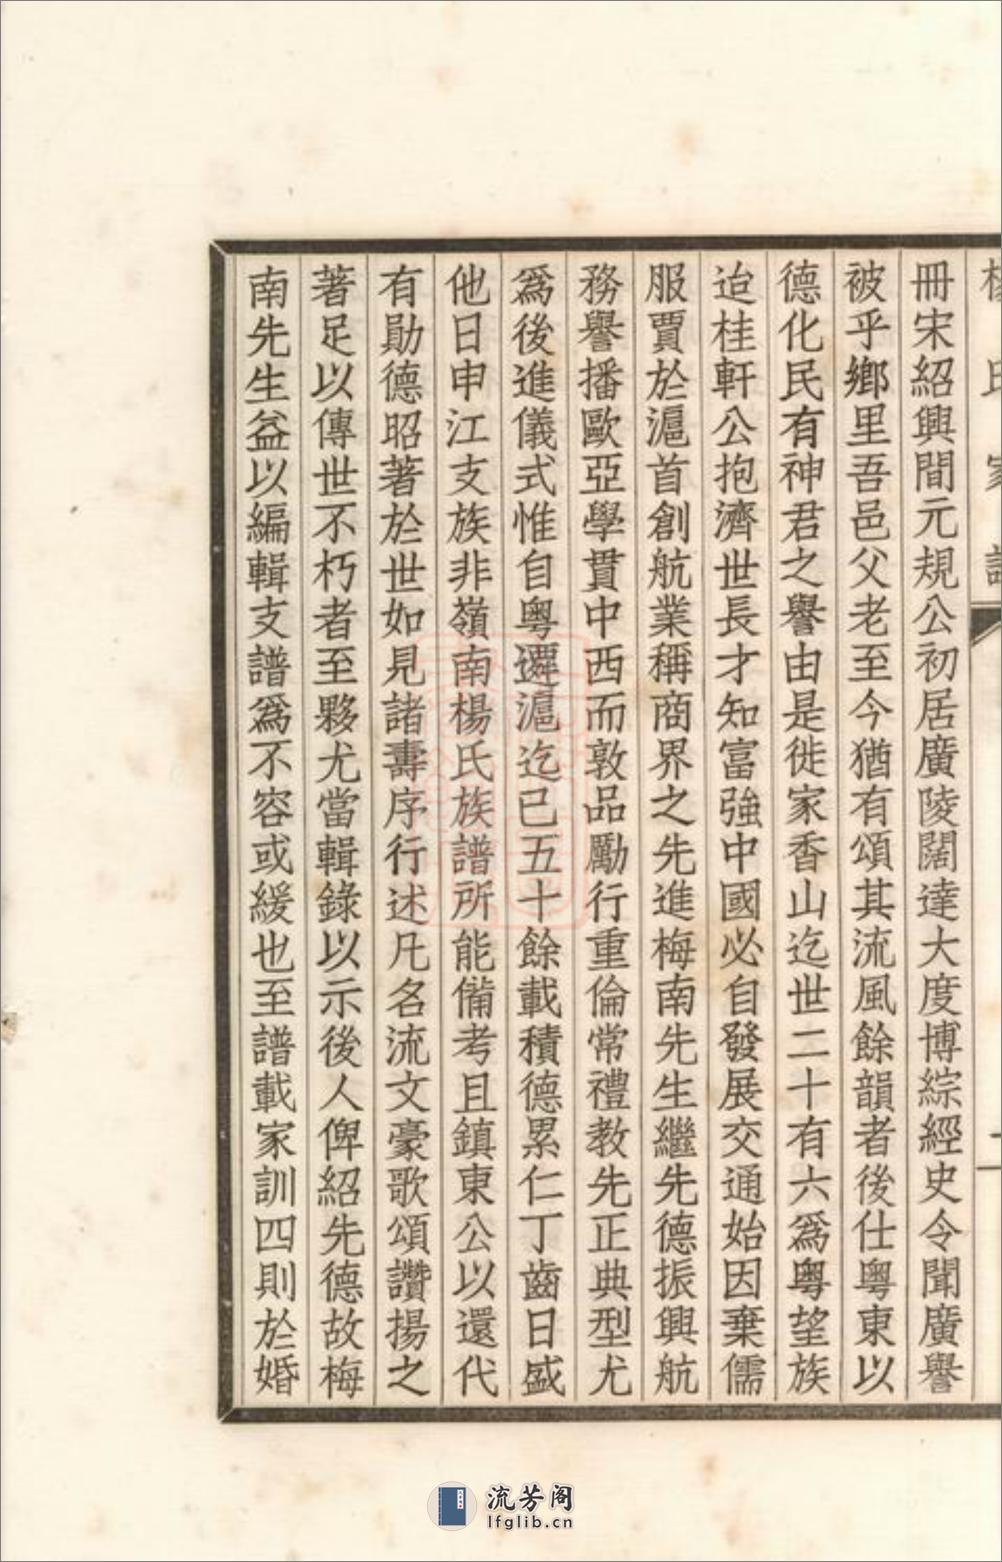 楊氏家譜
冊宋紹興間元規公初居廣陵闊達大度博綜經史令聞廣譽
被乎鄉里吾邑父老至今猶有頌其流風餘韻者後仕粵東以
德化民有神君之譽由是徙家香山迄世二十有六為粵望族
迨桂軒公抱濟世長才知富強中國必自發展交通始因棄儒
服賈於滬首創航業稱商界之先進梅南先生繼先德振興航
務譽播歐亞學貫中西而敦品勵行重倫常禮教先正典型尤
為後進儀式惟自粵遷滬迄已五十餘載積德累仁丁齒日盛
他日申江支族非嶺南楊氏族譜所能備考且鎮東公以還代
有勛德昭著於世如見諸壽序行述凡名流文豪歌頌讚揚之
著足以傳世不朽者至夥尤當輯錄以示後人俾紹先德故梅
南先生益以編輯支譜為不容或緩也至譜載家訓四則於婚
流芳阁
lfglib.cn